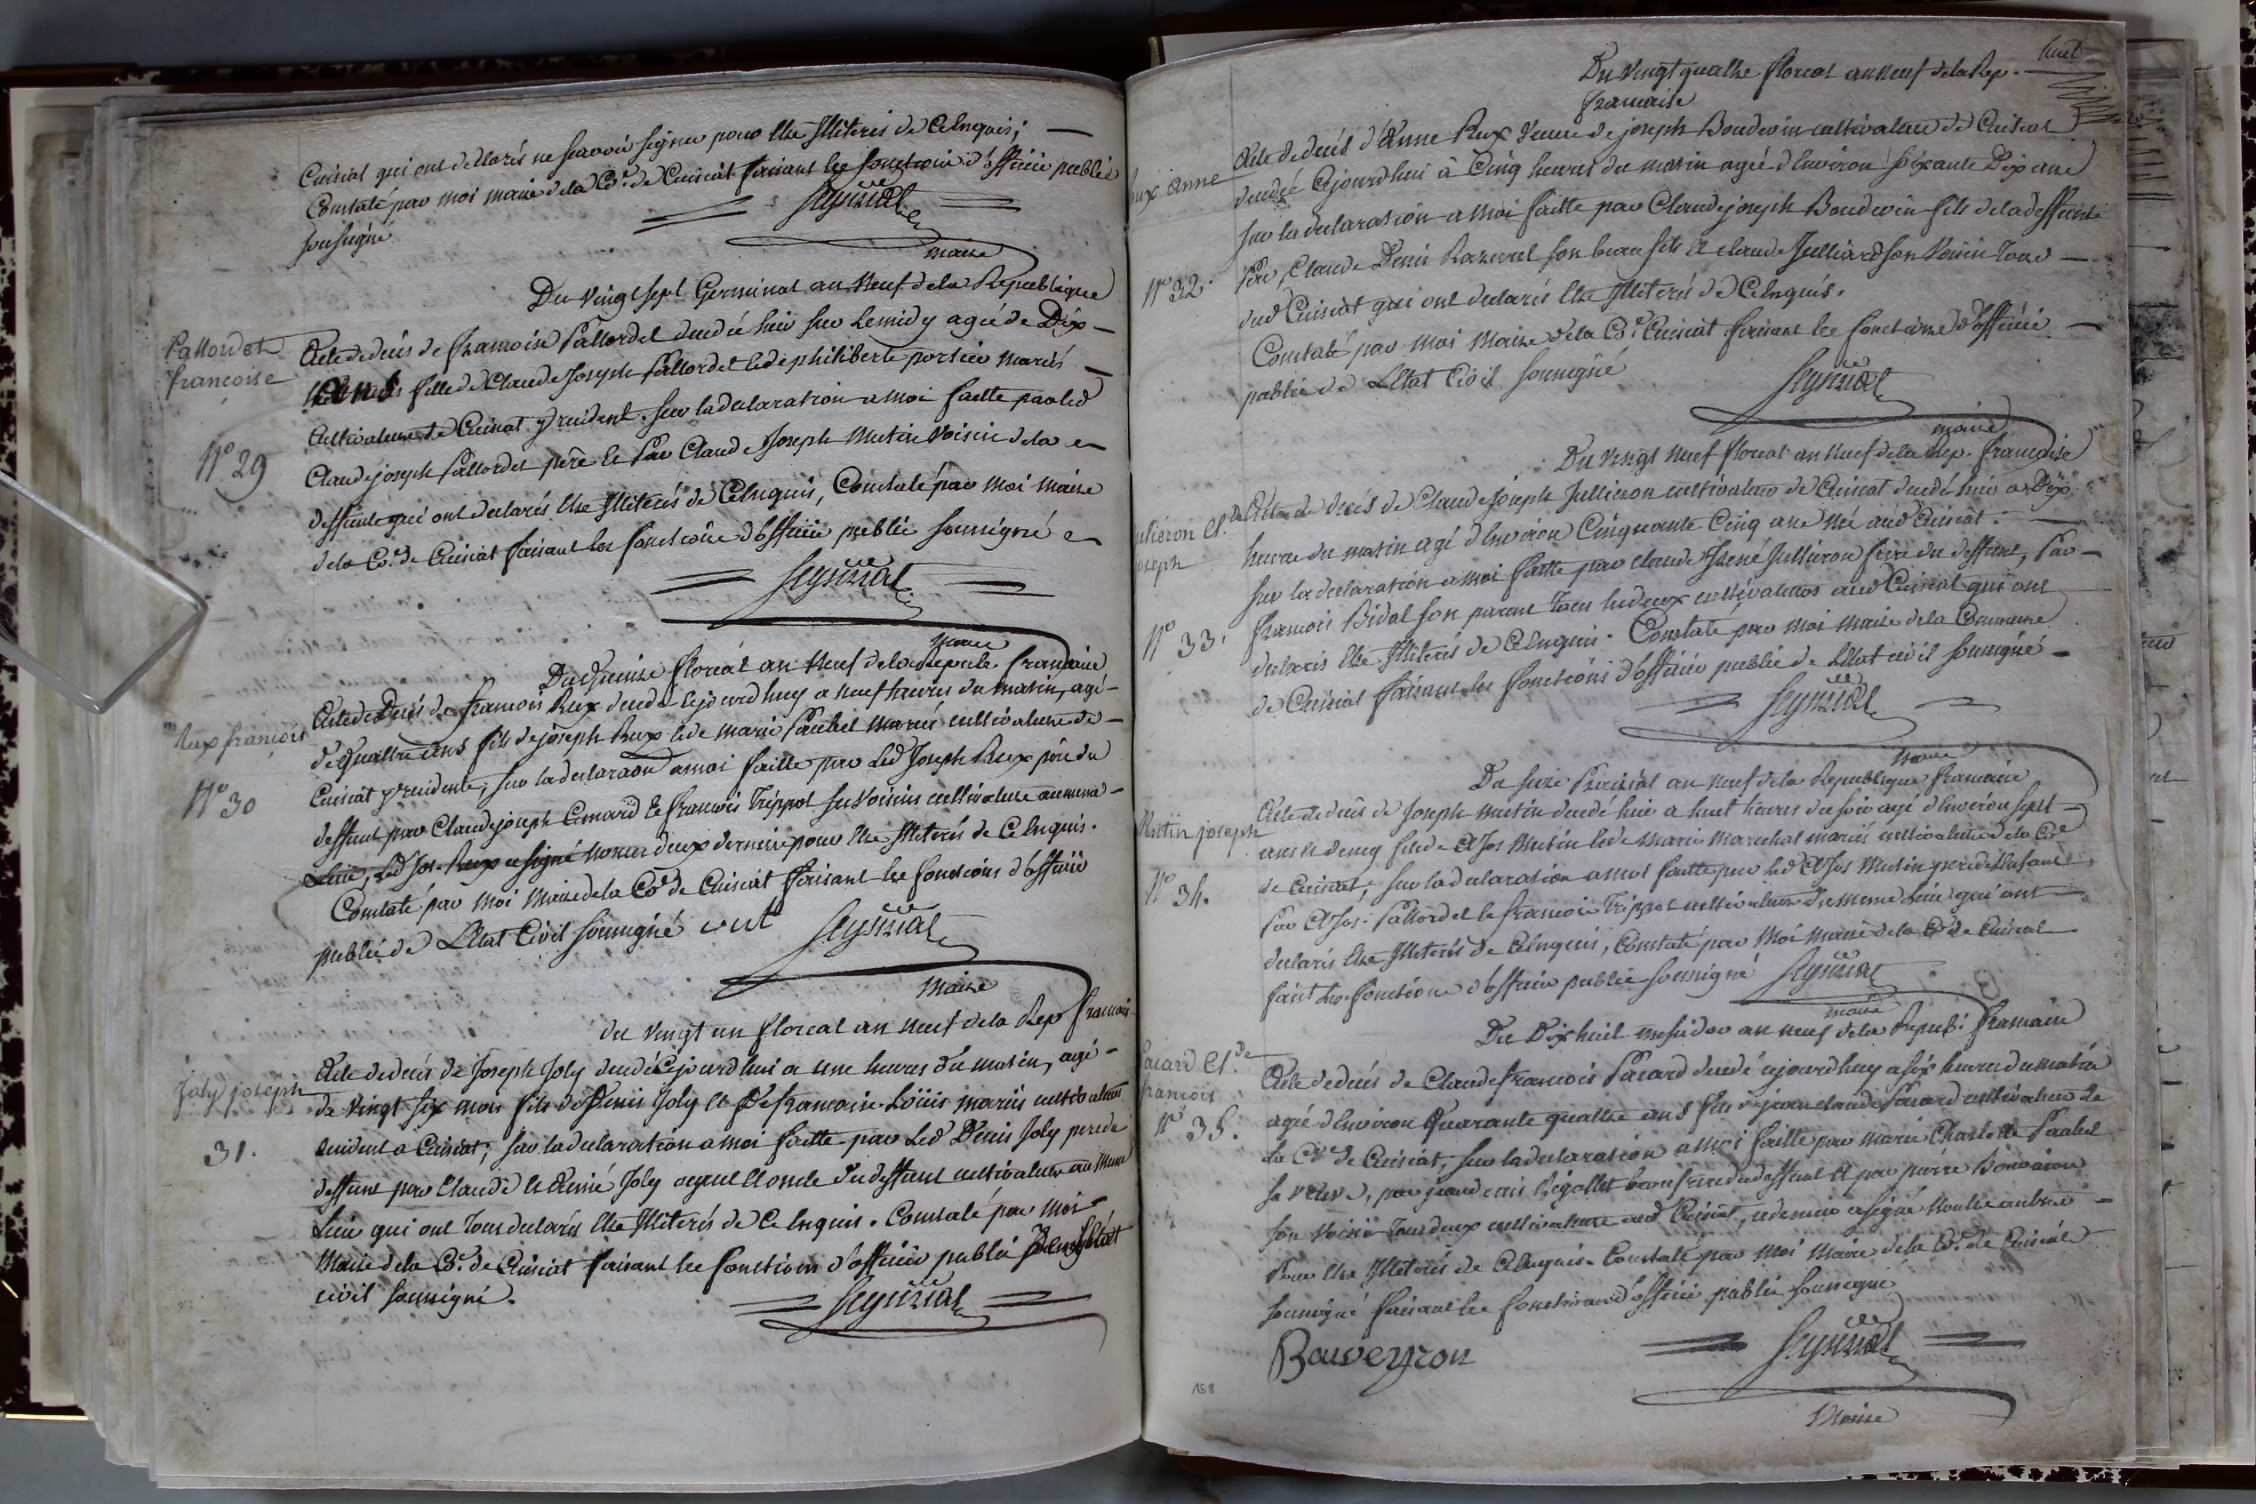 Cuisiat qui ont declarés ne scavoir signer pour être Illiterés de Ce Enquis;
Constaté par moi maire de la Cne. de Cuisiat faisant les fonctions d'officier public
soussigné
Seyssiat
maire
Du vingt sept Germinal an Neuf de la Republique
Pallordet françoise
Acte de decès de françoise Pallordet decedée hier sur le midy agée de Dix
ans fille de Claude Joseph Pallordet et de philiberte mariés
Cultivateurs de Cuisiat y resident. Sur la declaration a moi faitte par led
Nº 29
Claude joseph Pallordet père et par Claude Joseph Mutin Voisin de la
deffunte qui ont declarés être Illiterés de Ce Enquis, Constaté par moi maire
de la Cne. de Cuisiat faisant les fonctions d'officier public soussigné
Seyssiat
maire
Du Quinze floreal an Neuf de la Republ. française
Rux françois
Acte de Decès de françois Rux decedé Cejourd'huy a neuf heures du matin, agé
de quattre ans fils de joseph Rux et de marie Paubel mariés cultivateurs de
Nº 30
Cuisiat y residents, sur la declaraon a moi faitte par Led Joseph Rux père du
deffunt par Claude joseph et françois Trippoz ses voisins cultivateurs au meme
Lieu, Led Jos. Rux a signé non les deux derniers pour être Illiterés de Ce Enquis.
Constaté par moi Maire de la Cne de Cuisiat faisant les fonctions d'officier
public de L'Etat Civil soussigné
Seyssiat
Maire
du vingt un floreal an neuf de la Rep francais
Joly joseph
Acte de decès de Joseph Joly decedé Cejourd'hui a une heures du matin, agé
de vingt six mois fils de Denis Joly et De francoise Loüis mariés cultivateurs
31.
resident a Cuisiat; sur la declaration a moi faitte par Led Denis Joly pere du
deffunt par Claude et René Joly ayeul et oncle du deffunt cultivateurs au meme
Lieu qui ont Tous declarés être Illiterés de Ce Enquis. Constaté par moi
Maire de la Cne. de Cuisiat faisant les fonctions d'officier public
civil soussigné.
Seyssiat
huit
Du Vingt quattre floreal an neuf de la Rep.
française
Rux anne
Acte de decès d'Anne Rux Veuve de joseph Boudevin cultivateur de Cuisiat
decedée Cejourd'hui à Cinq heures du matin agée d'environ soixante Dix ans
sur la declaration a moi faitte par Claude joseph Boudevin fils de la deffunte
Nº 32.
par Claude Denis Razurel son beau fils et claude Julliard son Voisin Tous
dud Cuisiat qui ont declarés être Illiterés de Ce Enquis.
Constaté par moi Maire de la Cne. Cuisiat faisant les fonctions d'officier
public de L'Etat Civil soussigné
Seyssiat
maire
Du vingt Neuf floreal an neuf de la Rep. française
ulliéron Cl.de joseph
Acte de decès de Claude Joseph Jullieron cultivateur de Cuisiat decedé hier a Dix
heures du matin agé d'environ Cinquante Cinq ans né aud Cuisiat.
sur la declaration a moi faitte par claude René Jullieron frère du deffunt, Par
Nº 33.
francois Bidal son parent Tous les deux cultivateurs aud Cuisiat qui ont
declarés être Illiterés de Ce Enquis. Constaté par moi maire de la Commune
de Cuisiat faisant les fonctions d'officier public de L'Etat civil soussigné
Seyssiat
maire
Du seize Prairial an neuf de la Republique francaise
Mutin joseph
Acte de decès de Joseph Mutin decedé hier a huit heures du soir agé d'environ sept
ans et demy fils de Cl Jos Mutin et de Marie Marechal mariés cultivateurs de la Cne
Nº 34.
de Cuisiat; sur la declaration a moi faitte par led Cl Jos Mutin pere de L'enfant
Par Cl Jos. Pallordet et francois Trippoz cultivateurs du meme Lieu qui ont
declarés être Illiterés de Ce Enquis, Constaté par Moi maire de la Cne de Cuisiat
fait les fonctions d'officier public soussigné
Seyssiat
maire
Du Dix huit messidor an neuf de la Republ: francaise
Pacard Cl.de francois
Acte de decès de Claude francois Pacard decedé cejourd'huy a six heures du matin
Nº 35.
agé d'environ Quarante quattre ans fils de jean claude Pacard cultivateur de
la Cne de Cuisiat, sur la declaration a moi faitte par marie Charlotte Paubel
sa veuve, par jean denis Rigollet beaufrere du deffunt et par pierre Bouveiron
son voisin Tous deux cultivateurs aud Cuisiat, ce dernier a signé non les autres
Pour être Illiterés de Ce Enquis. Constaté par moi Maire de la Cne. de Cuisiat
soussigné faisant les fonctions d'officier public soussigné
Bouveyron
Seyssiat
Maire
158